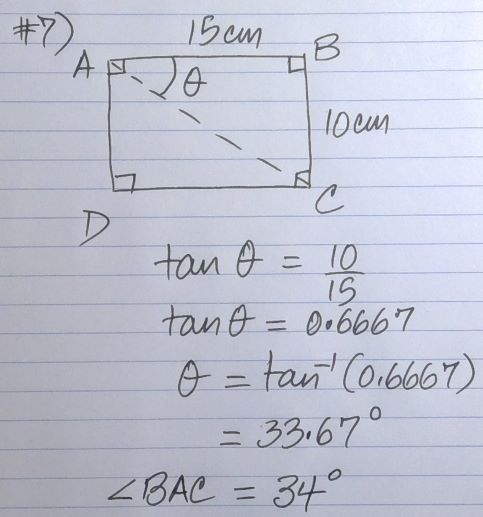 #7)
15cm
A
B
θ
10cm
D
C
tan θ = 10/15
tan θ = 0.6667
θ = tan⁻¹(0.6667)
= 33.67°
∠BAC = 34°